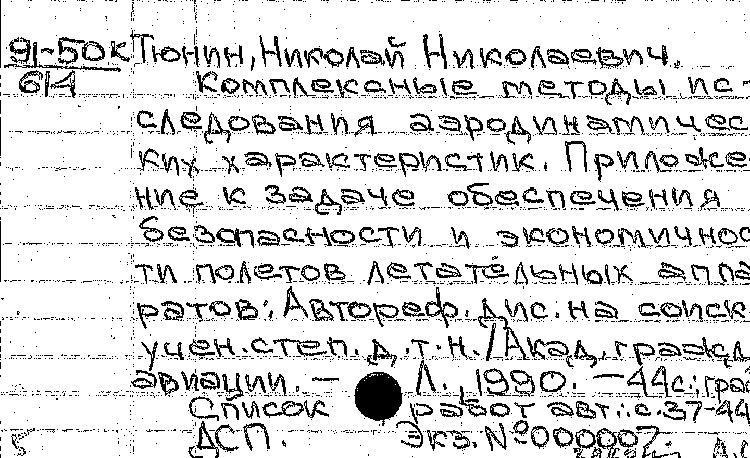 91-50к Тюнин, Николай Николаевич.
61-1 Комплексные методы ис-
следования аэродинамичес
ких характеристик. Приложе
ние к задаче обеспечения
безопасности и экономичнос
ти полетов летательных аппа
ратов: Автореф. дис. на соиск
учен. степ. д.т.н./Акад. гражд
авиации. — Л., 1990. — 44с.: гра
Список работ авт.: с. 37-44
ДСП. Экз. №000007.
5